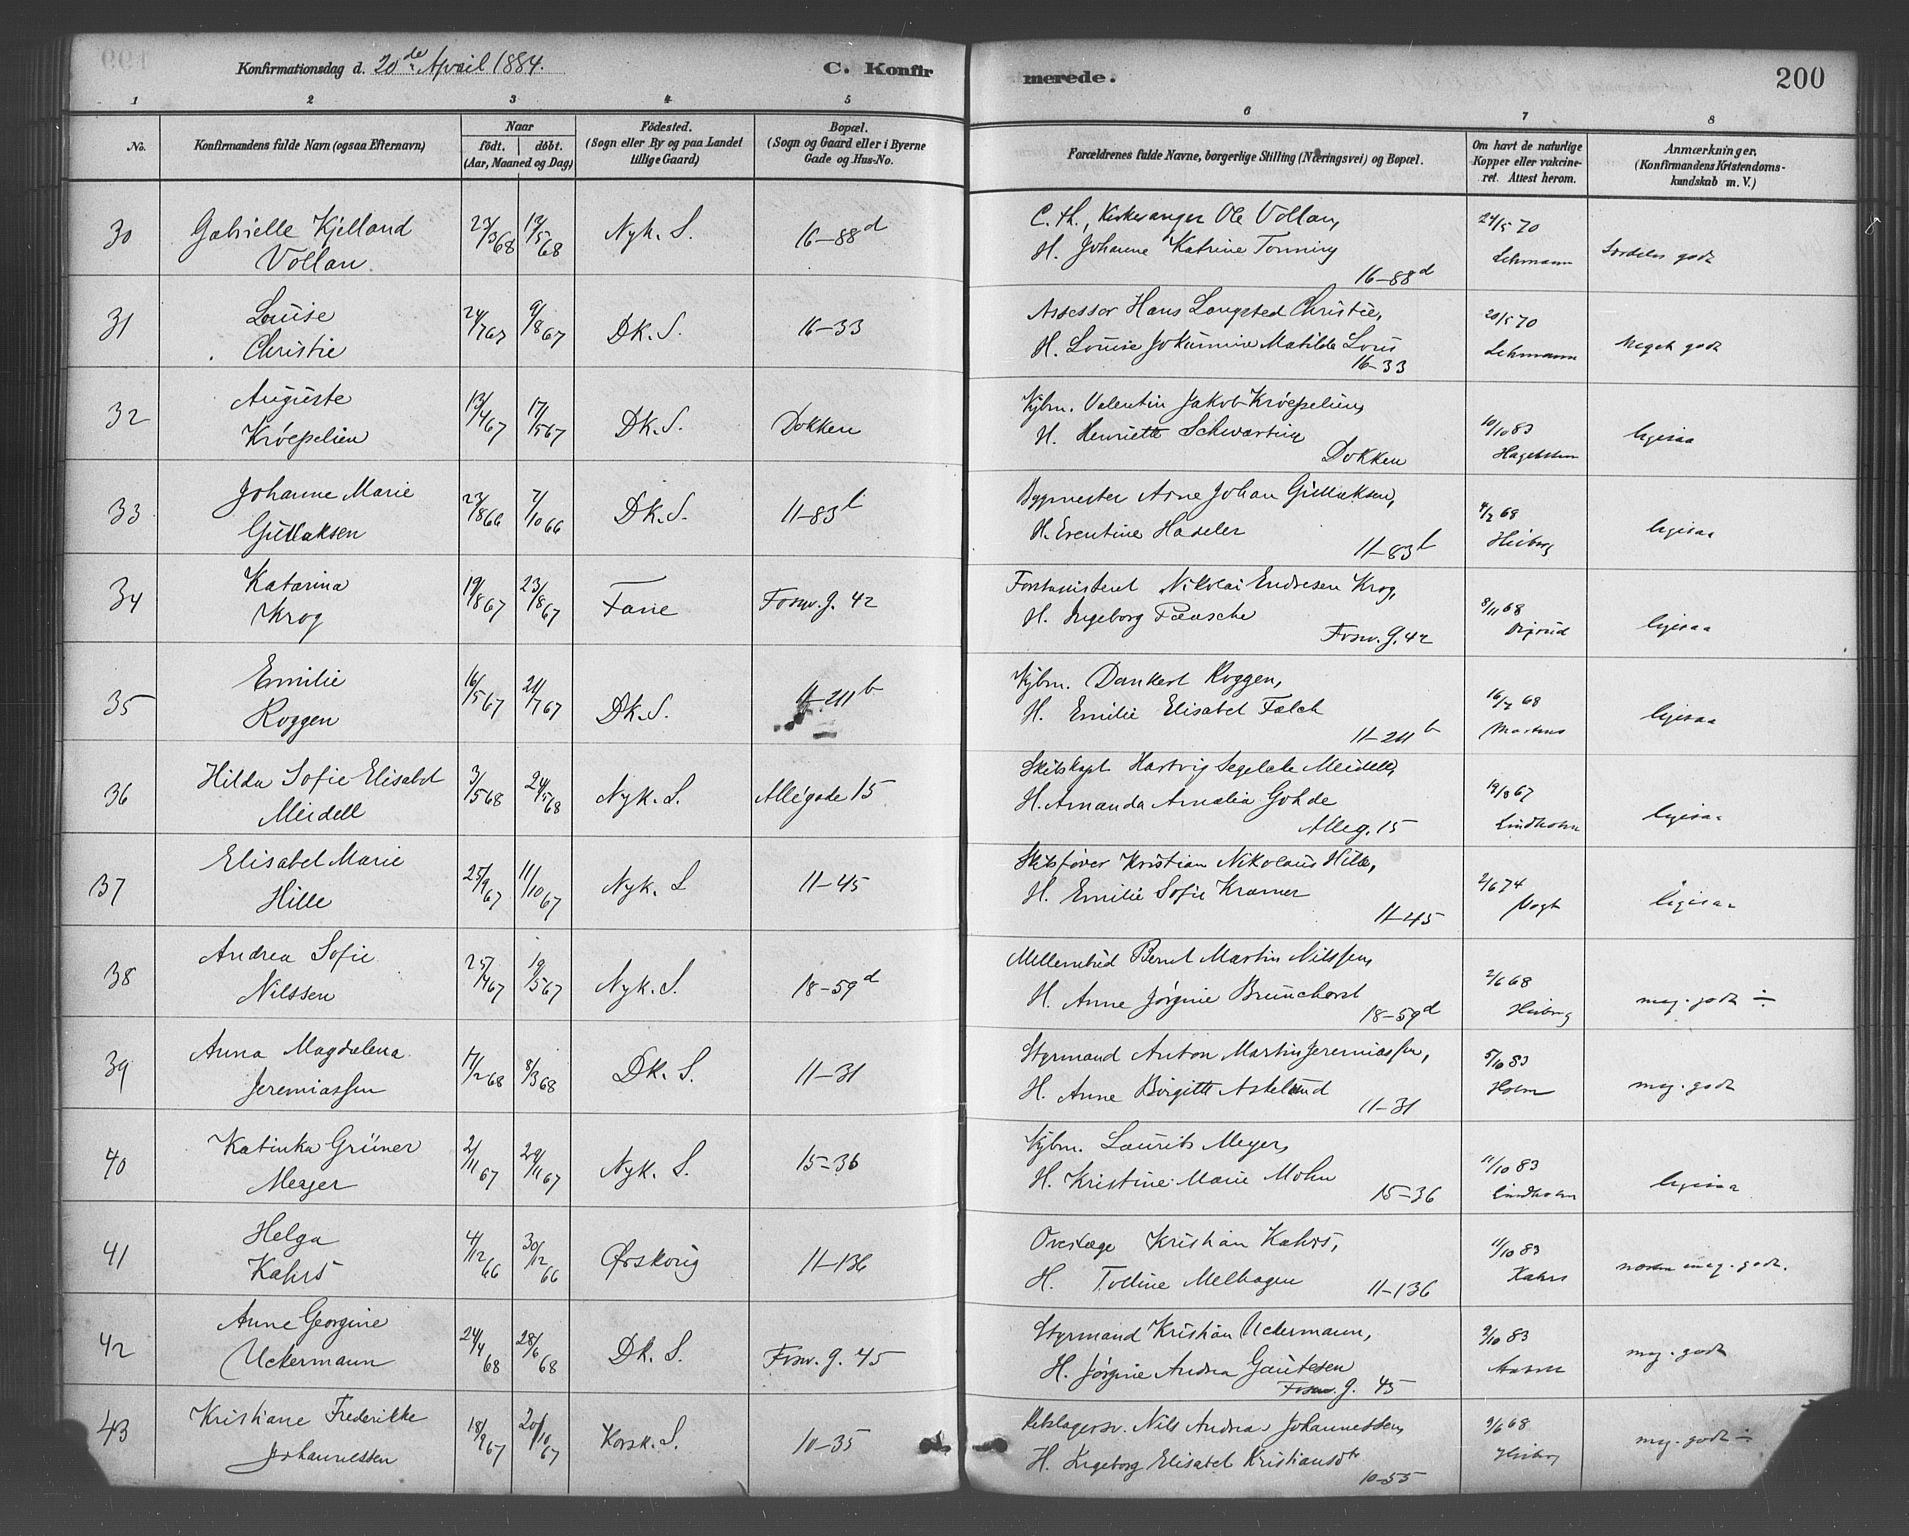 Konfirmationsdag d. 20de April 1884.
C. Konfirmerede.
200
1 2 3 4 5 6 7 8
No. Konfirmandens fulde Navn (ogsaa Efternavn) Naar födt. döbt. (Aar, Maaned og Dag) Födested. (Sogn eller By og paa Landet tillige Gaard) Bopæl. (Sogn og Gaard eller i Byerne Gade og Hus-No. Forældrenes fulde Navne, borgerlige Stilling (Næringsvei) og Bopæl. Om havt de naturlige Kopper eller vakcineret. Attest herom. Anmærkninger, (Konfirmandens Kristendomskundskab m. V.)
30 Gabrielle Kjelland 23/3 68 19/5 68 Nyk. S. 16-88d C. th., Kirkesanger Ole Vollan, 24/5 70
Vollan. H. Johanne Katrine Tonning Lehmann Særdeles godt
16-88d
31 Louise 24/7 67 9/8 67 DK. S. 16-33 Assessor Hans Langsted Christie, 20/5 70
Christie H. Louise Jokumine Matilde Lous Lehmann Meget godt
16-33
32 Auguste 13/4 67 17/5 67 DK. S. Dokken Kjbm. Valentin Jakob Krøepelien, 10/10 83
Krøepelien H. Henriette Schwarting Hagelsteen ligesaa
Dokken
33 Johanne Marie 23/8 66 7/10 66 DK. S. 11-83b Bygmester Arne Johan Gullaksen, 4/2 68
Gullaksen H. Erentine Hadeler Heiberg ligesaa
11-83b
34 Katarina 19/8 67 23/8 67 Fane Fosw. g. 42 Forstassistent Nikolai Endresen Krog, 8/11 68
Krog H. Ingeborg Paasche ligesaa
Fosw. g. 42
35 Emilie 16/5 67 21/7 67 DK. S. 11-211b Kjbm. Dankert Roggen, 16/7 68
Roggen H. Emilie Elisabet Falch Martens ligesaa
11-211b
36 Hilda Sofie Elisabet 3/5 68 24/5 68 Nyk. S. Allégade 15 Skibskapt. Hartvig Segelcke Meidell, 19/8 67
Meidell H. Amanda Amalia Gohde Lindholm ligesaa
Alleg. 15
37 Elisabet Marie 25/9 67 11/10 67 Nyk. S 11-45 Skibsfører Kristian Nikolaus Hille, 2/6 74
Hille H. Emilie Sofie Kramer Vogt ligesaa
11-45
38 Andrea Sofie 25/4 67 19/5 67 Nyk. S. 18-59d Mellembud Bernt Martin Nilssen, 2/6 68
Nilssen H. Anne Jørgine Brunchorst Heiberg meg. godt ÷
18-59d
39 Anna Magdalena 17/2 68 8/3 68 DK. S. 11-31 Styrmand Anton Martin Jeremiassen, 5/10 83
Jeremiassen H. Anne Birgitte Askelund Holm meg. godt
11-31
40 Katinka Grüner 2/11 67 29/11 67 Nyk. S. 15-36 Kjbm. Laurits Meyer, 11/10 83
Meyer H. Kristine Marie Mohn Lindholm ligesaa
15-36
41 Helga 4/12 66 30/12 66 Ørskoug 11-136 Overlæge Kristian Kahrs, 11/10 83
Kahrs H. Tolline Melhagen Kahrs næsten meg. godt.
11-136
42 Anne Georgine 24/4 68 28/6 68 DK. S. Fosw. g. 45 Styrmand Kristian Uckermann, 9/10 83
Uckermann H. Jørgine Andrea Gautesen meg. godt
Fosw. g. 45
43 Kristiane Frederikke 18/9 67 20/10 67 Korsk. S. 10-35 Rebslagersv. Nils Andreas Johannessen, 9/6 68
Johannessen H. Ingeborg Elisabet Kristiansdtr Heiberg meg. godt ÷
10-55